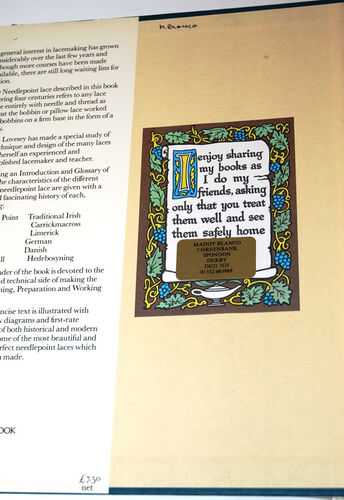 general interest in lacemaking has grown
nsiderably over the last few years and
hough more courses have been made
ailable, there are still long waiting lists for
ion.
Needlepoint lace described in this book
ering four centuries refers to any lace
e entirely with needle and thread as
nst the bobbin or pillow lace worked
bobbins on a firm base in the form of a
w.
Lovesey has made a special study of
chnique and design of the many laces
erself an experienced and
blished lacemaker and teacher.
ng an Introduction and Glossary of
he characteristics of the different
needlepoint lace are given with a
l fascinating history of each,
g:
Point Traditional Irish
Carrickmacross
Limerick
German
Danish
ll Hedebosyning
nder of the book is devoted to the
d technical side of making the
ning, Preparation and Working
ncise text is illustrated with
y diagrams and first-rate
of both historical and modern
ome of the most beautiful and
rfect needlepoint laces which
n made.
OOK
£7.50
net
M. BLANCO
I enjoy sharing
my books as
I do my
friends, asking
only that you treat
them well and see
them safely home
MADDY BLANCO
7 GREENBANK
SPONDON
DERBY
DE21 7GJ
01332 663989